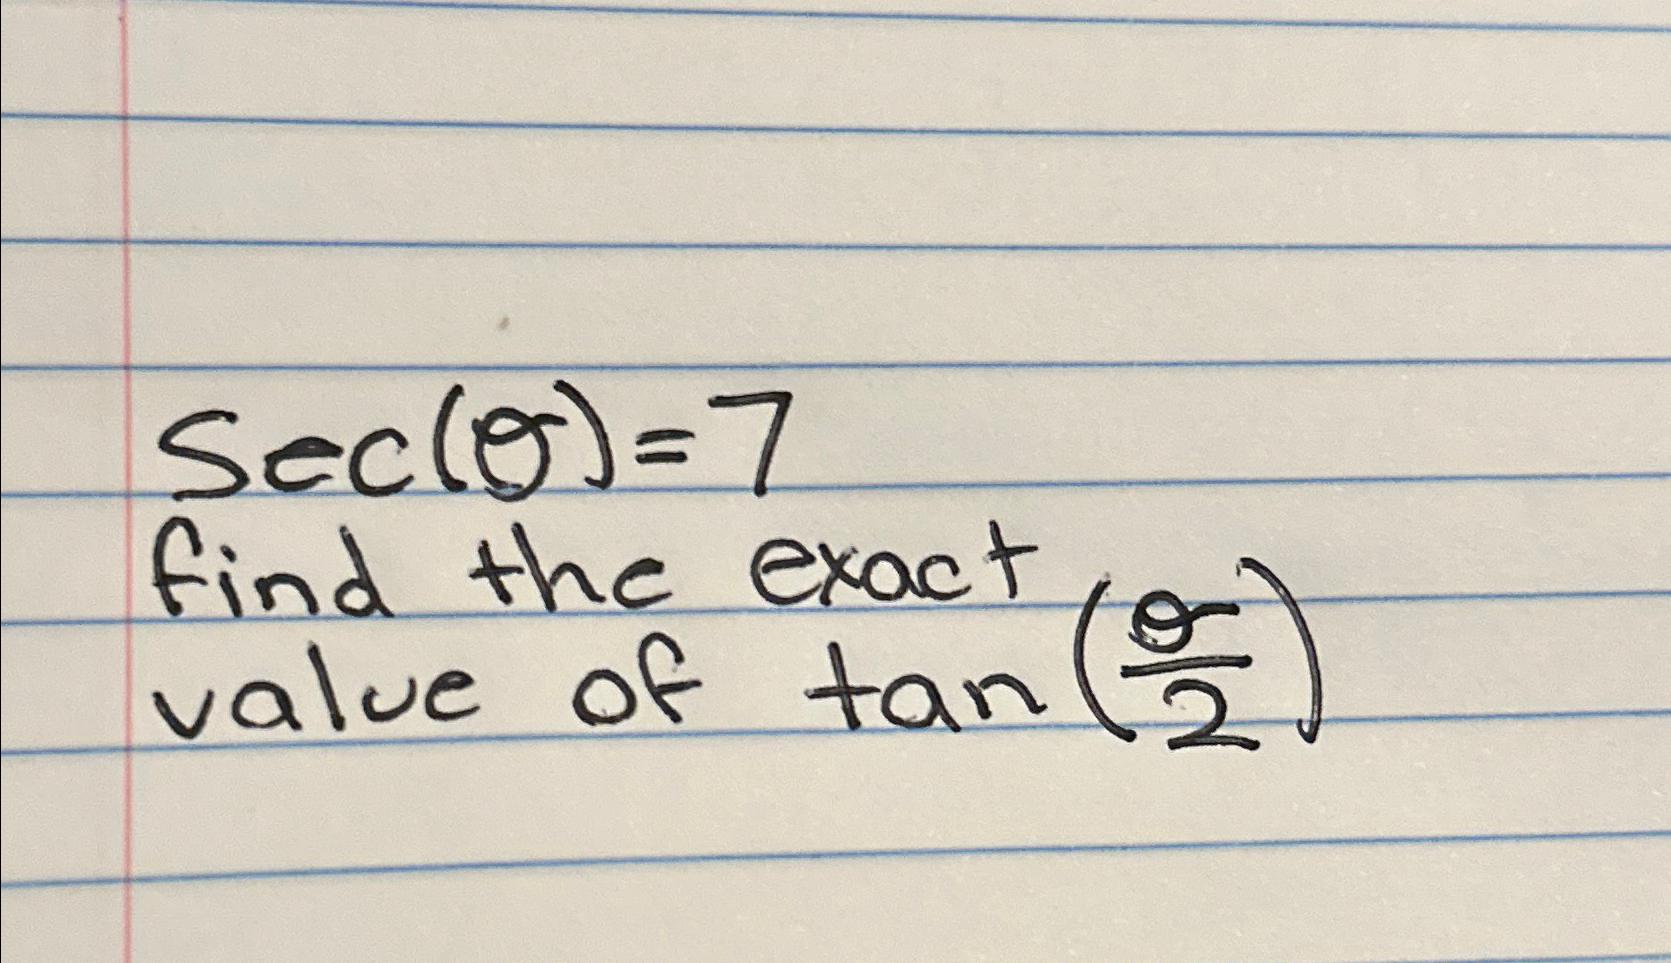 Sec(σ)=7
find the exact
value of tan(σ/2)